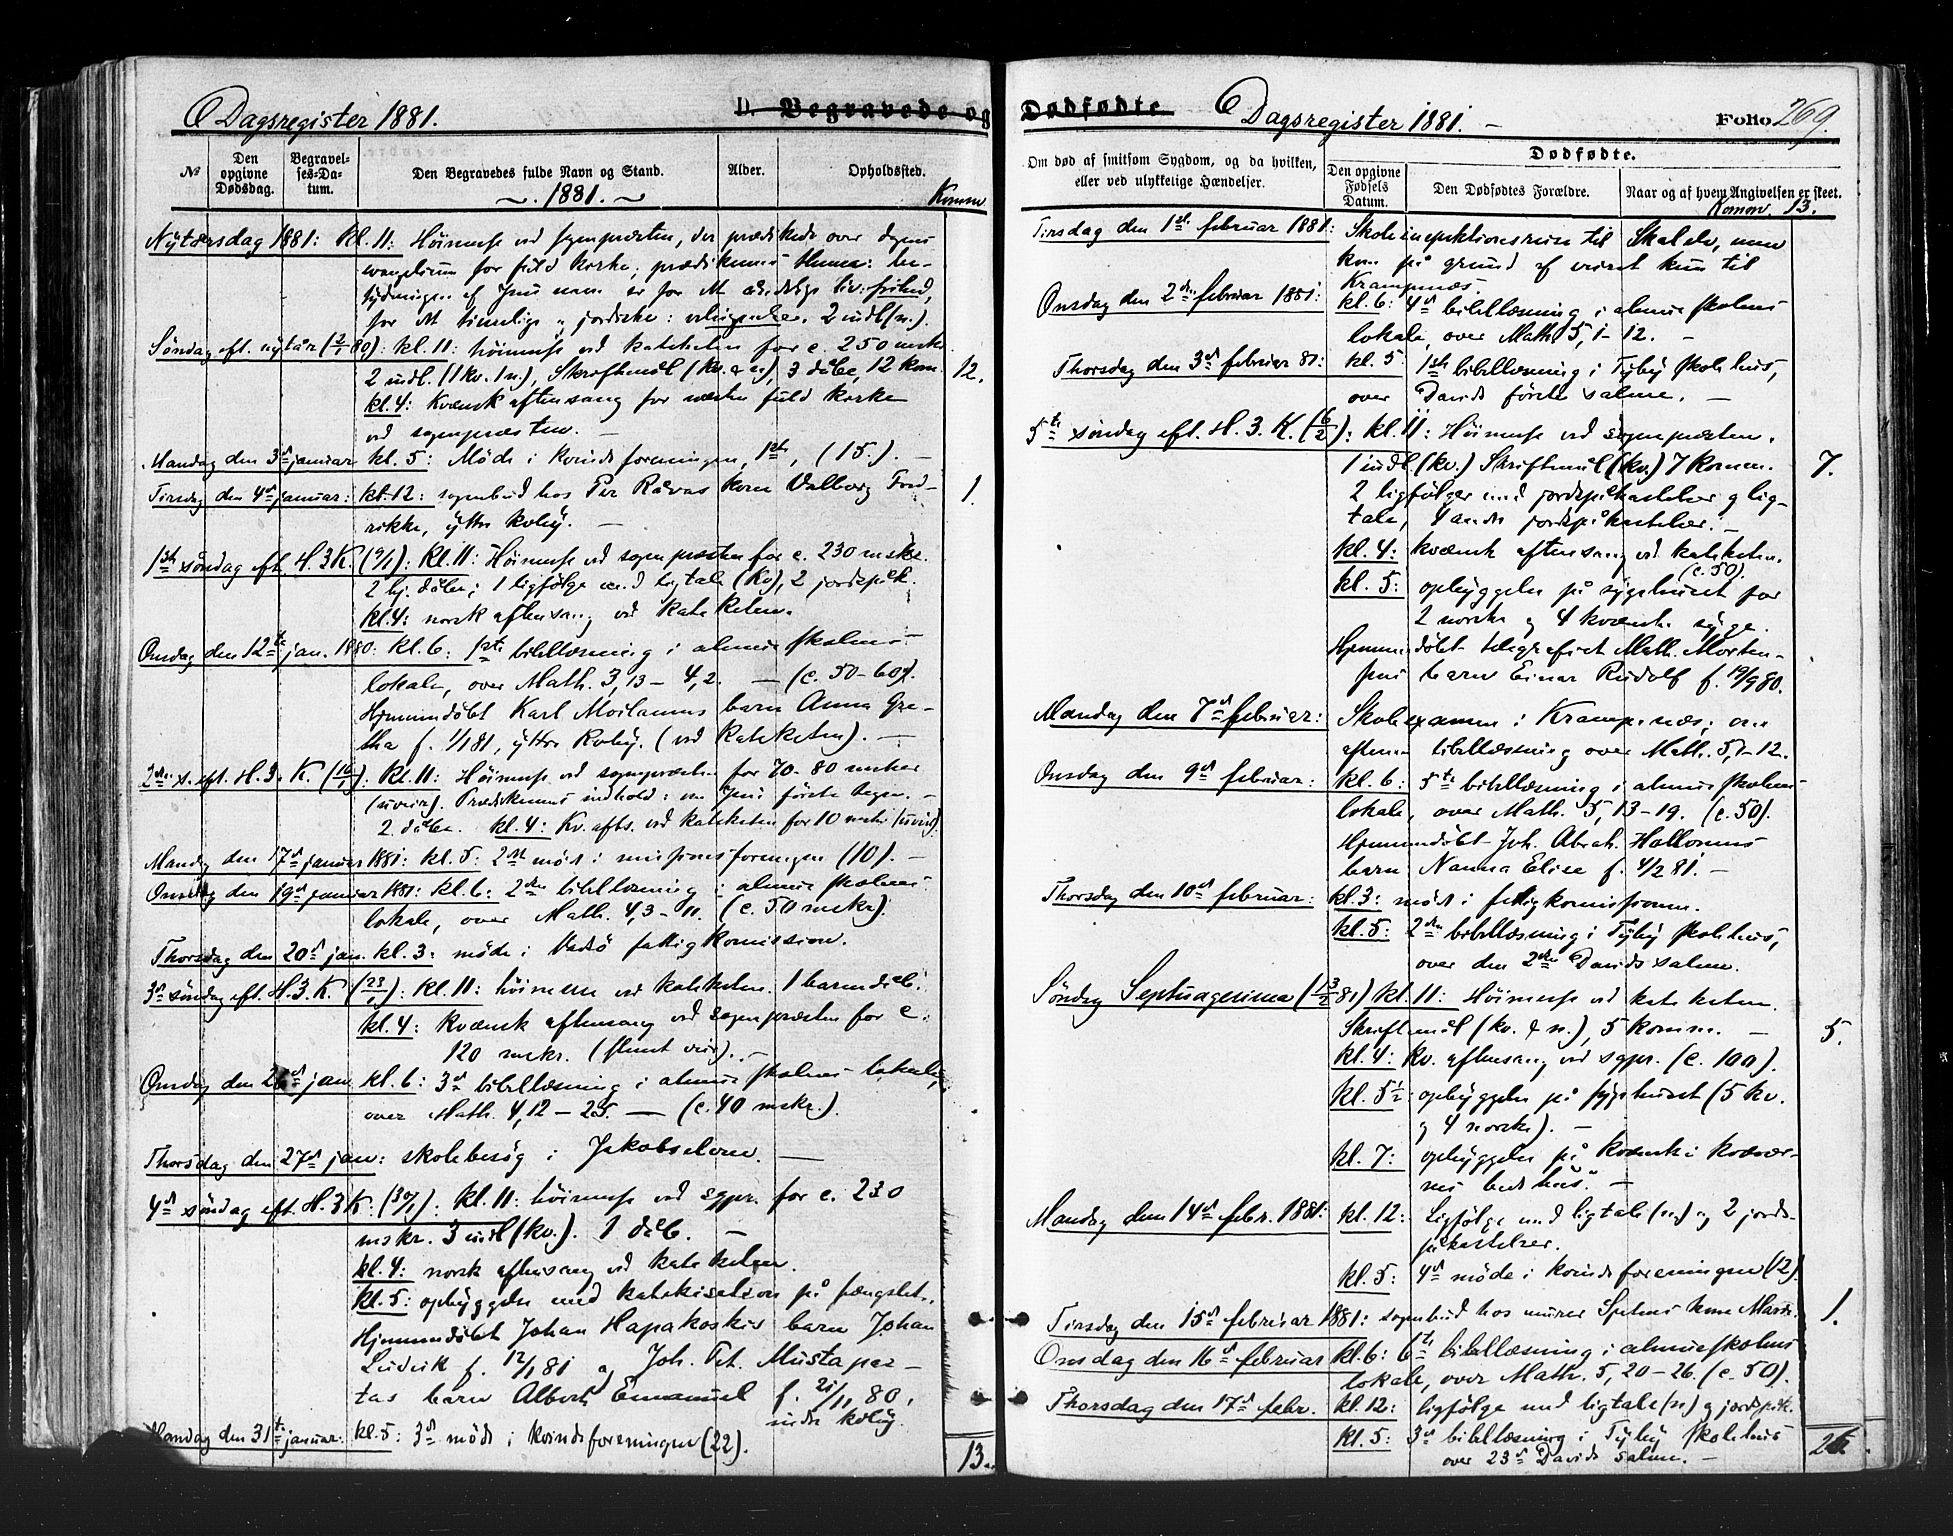 Dagsregister 1881.
D. Begravede og
№
Den opgivne Dødsdag.
Begravelses-Datum.
Den Begravedes fulde Navn og Stand.
Alder.
Opholdssted.
1881.
Komm
Nytårsdag 1881: kl. 11: Höimesse ved sognepræsten, der prædikede over dagens
evangelium for fuld kirke; prædikenens thema: be-
tydningen af Jesu navn er for det åndelige liv: frihed,
for det timelige og jordiske: velsignelse. 2 indl (n.).
Søndag eft. nytår (2/1 80): kl. 11: höimesse ved kateketen for c. 250 mskr.
2 indl. (1 kv. 1 n.), Skriftemål (kv. & n), 3 dåbe, 12 kom. 12.
kl. 4: Kvænsk aftensang for næsten fuld kirke
ved sognepræsten. —
Mandag den 3d januar kl. 5: Møde i kvindeforeningen, 1ste, (15.). —
Tirsdag den 4d januar: kl. 12: sognebud hos Per Råvas kone Valborg Fred- 1.
rikke, ytre kvby. —
1ste søndag eft. H.3K. (9/1): kl. 11: Höimesse ved sognepræsten for c. 230 mskr.
2 hj. dåbe; 1 ligfølge med ligtale (kv), 2 jordspåk.
kl. 4: norsk aftensang ved kateketen.
Onsdag den 12te jan. 1880: kl. 6: 1ste bibellæsning i almueskolens
lokale, over Math. 3,13 — 4,2. — (c. 50-60).
Hjemmedöbt Karl Moilanens barn Anna Gre-
tha f. 1/1 81, ytre Kvby. (ved kateketen). —
2den s. eft. H.3. K. (16/1): kl. 11: Höimesse ved sognepræsten for 70-80 mskr
(uveir). Prædikenens indhold: om Jesu første tegn. —
2 dåbe. kl. 4: Kv. afts. ved kateketen for 10 mskr (uveir).
Mandag den 17d januar 1881: kl. 5: 2det møde i missionsforeningen (10). —
Onsdag den 19d januar 1881: kl. 6: 2den bibellæsning i almueskolens
lokale, over Math. 4,3 — 11. (c. 50 mskr).
Thorsdag den 20d jan. kl. 3: møde i Vadsö fattigkomission.
3d søndag eft. H.3.K. (23/1): kl. 11: höimesse ved kateketen. 1 barnedåb.
kl. 4: Kvænsk aftensang ved sognepræsten for c.
120 mskr. (slemt veir). —
Onsdag den 26d jan kl. 6: 3d bibellæsning i almueskolens lokale,
over Math. 4,12 — 25. — (c. 40 mskr.).
Thorsdag den 27d jan: skolebesög i Jakobselven. —
4d søndag eft. H.3K. (30/1): kl. 11: höimesse ved sgpr. for c. 230
mskr. 3 indl (kv.). 1 dåb. —
kl. 4: norsk aftensang ved kateketen.
kl. 5: opbyggelse med katekisation på fængslet.
Hjemmedöbt Johan Hapakoskis barn Johan
Ludvik f. 12/1 81 og Joh. Pet. Mustapar-
tas barn Albert Emanuel f. 21/11 80,
indre kvby.
Mandag den 31te januar: kl. 5: 3d møde i kvindeforeningen (22).
13.
Dødfødte.
Dagsregister 1881. —
Folio 269.
Om død af smitsom Sygdom, og da hvilken, eller ved ulykkelige Hændelser.
Dødfødte.
Den opgivne Fødsels Datum.
Den Dødfødtes Forældre.
Naar og af hvem Angivelsen er skeet.
Komm. 13.
Tirsdag den 1ste februar 1881: Skoleinspektionsreise til Skalelv, men
kom på grund af veiret kun til
Krampenæs.
Onsdag den 2den februar 1881: kl. 6: 4d bibellæsning i almueskolens
lokale, over Math. 5, 1-12. —
Thorsdag den 3d februar 81: kl. 5: 1ste bibellæsning i Fyby skolehus,
over Davids første salme. —
5te søndag eft. H. 3. K. (6/2): kl. 11: Höimesse ved sognepræsten.
1 indl (kv.) Skriftemål (kv.) 7 komm. 7.
2 ligfølger med jordspåkastelser og lig-
tale, 4 andre jordspåkastelser. —
kl. 4: kvænsk aftensang ved kateketen.
(c. 50).
kl. 5: opbyggelse på sygehuset for
2 norske og 4 kvænske syge.
Hjemmedöbt telegrafist Math. Morten-
sens barn Einar Rudolf f. 19/9 80.
Mandag den 7d februar: Skoleexamen i Krampenæs; om
aftenen bibellæsning over Math. 5,1-12.
Onsdag den 9d februar: kl. 6: 5te bibellæsning i almueskolens
lokale, over Math. 5, 13-19. (c. 50).
Hjemmedöbt Joh. Abrah. Hallonens
barn Nanna Elise f. 4/2 81. —
Thorsdag den 10d februar: kl. 3: møde i fattigkomissionen.
kl. 5: 2den bibellæsning i Fyby skolehus,
over den 2den Davids salme.
Søndag Septuagesima (13/2 81) kl. 11: Höimesse ved kateketen.
Skriftemål (kv. & n.), 5 komm. — 5.
kl. 4: kv. aftensang ved sgpr. (c. 100).
kl. 5½: opbyggelse på sygehuset (5 kv.
og 4 norske). —
kl. 7: opbyggelse på kvænsk i
bedehus. —
Mandag den 14d febr. 1881: kl. 12: Ligfølge med ligtale (n.) og 2 jords-
påkastelser.
kl. 5: 4d møde i kvindeforeningen (12).
Tirsdag den 15d februar 1881: sognebud hos murer kone 1.
Onsdag den 16d februar kl. 6: 6te bibellæsning i almueskolens
lokale, over Math. 5, 20-26. (c. 50).
Thorsdag den 17d febr. kl. 12: ligfølge med ligtale (n) og jordspåk.
kl. 5: 3d bibellæsning i Fyby skolehus
over 23d Davids salme. —
26.